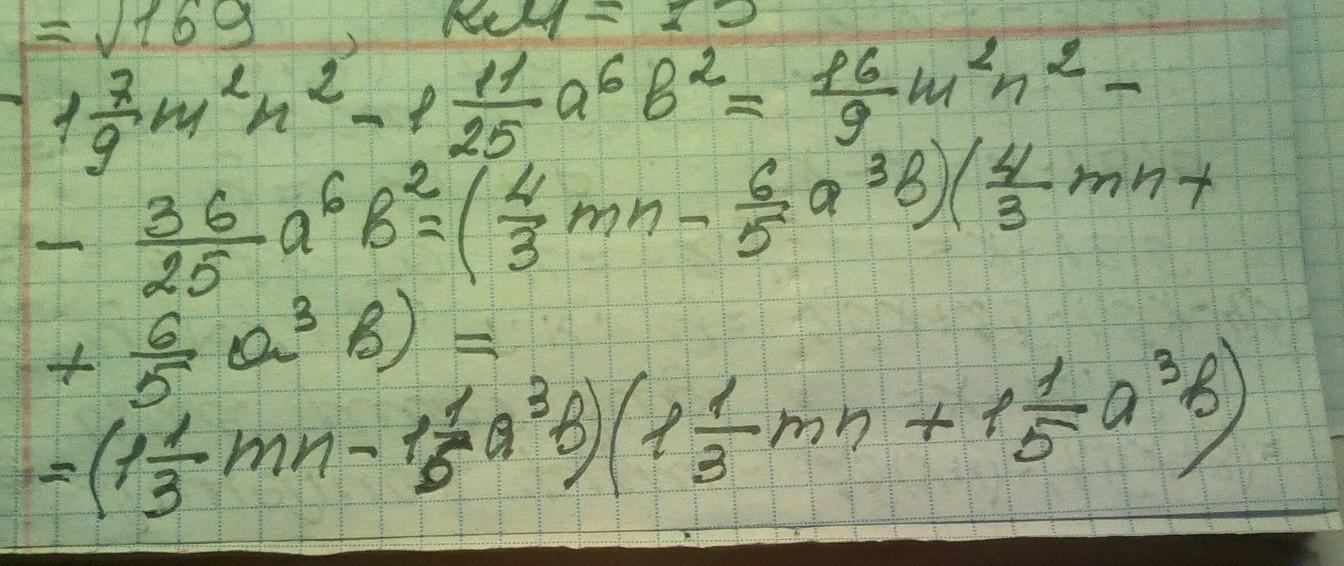 = √169, KM = 13
1 7/9 m²n² - 1 11/25 a⁶b² = 16/9 m²n² -
- 36/25 a⁶b² = (4/3 mn - 6/5 a³b)(4/3 mn +
+ 6/5 a³b) =
= (1 1/3 mn - 1 1/5 a³b)(1 1/3 mn + 1 1/5 a³b)